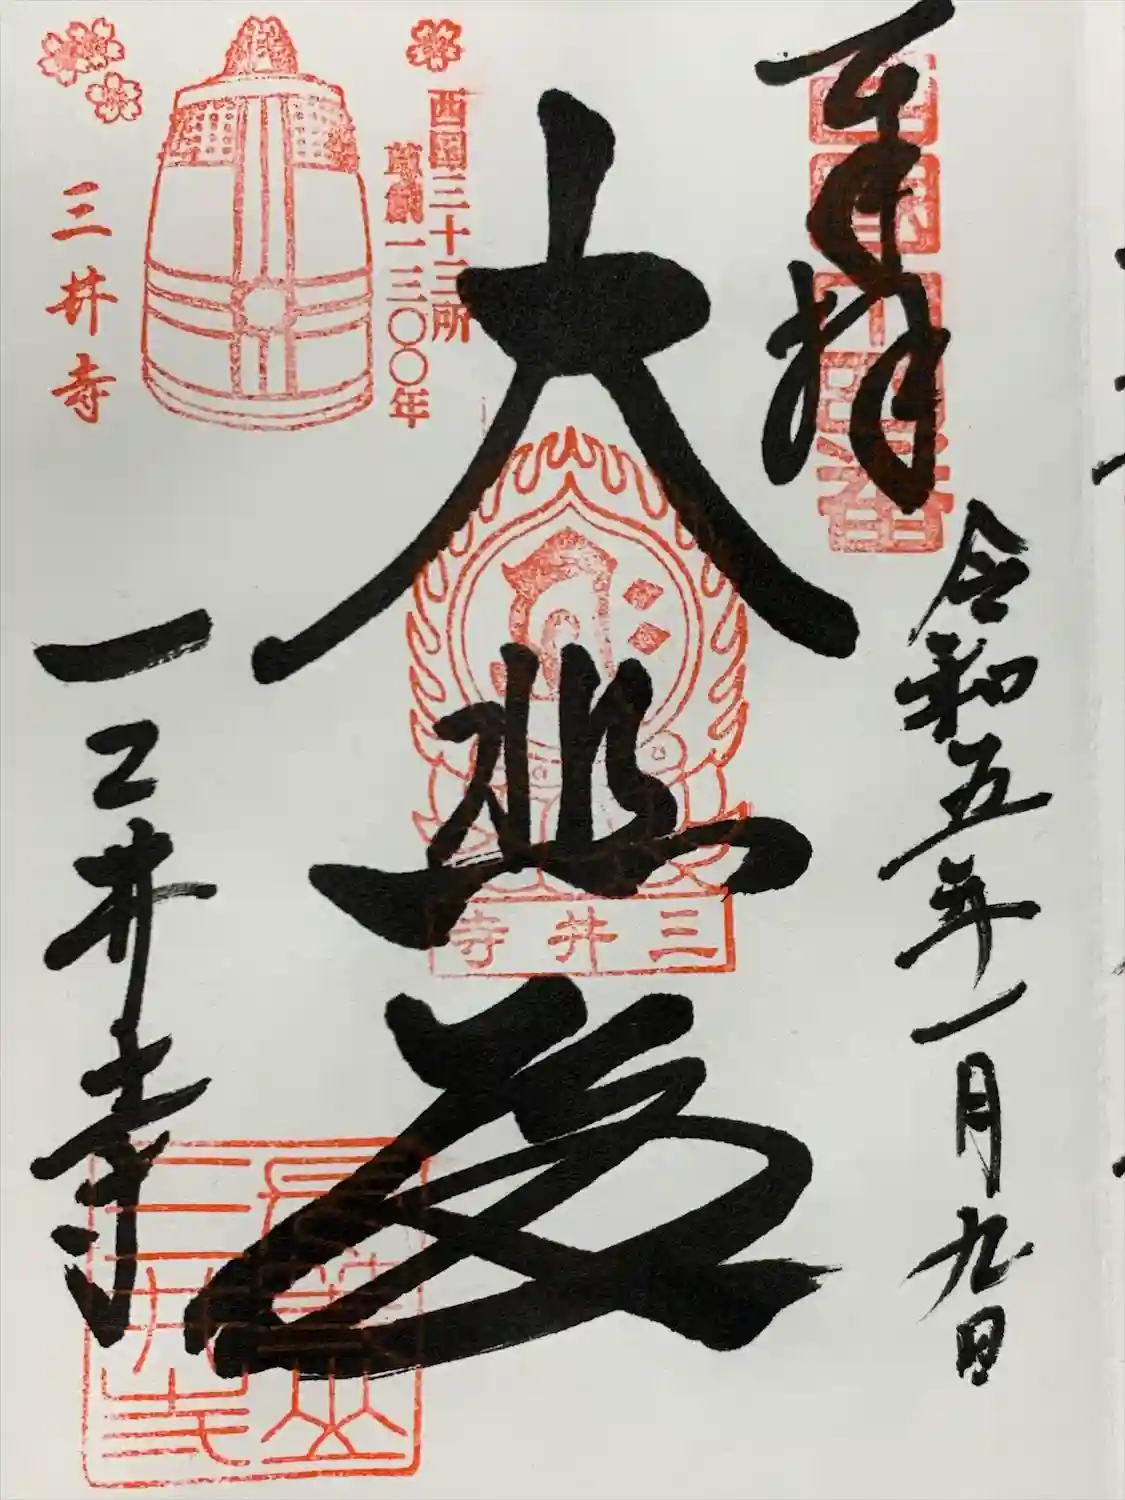 奉拝
令和五年一月九日
西国三十三所
草創一三〇〇年
大悲殿
三井寺
三井寺
三井寺
三井寺